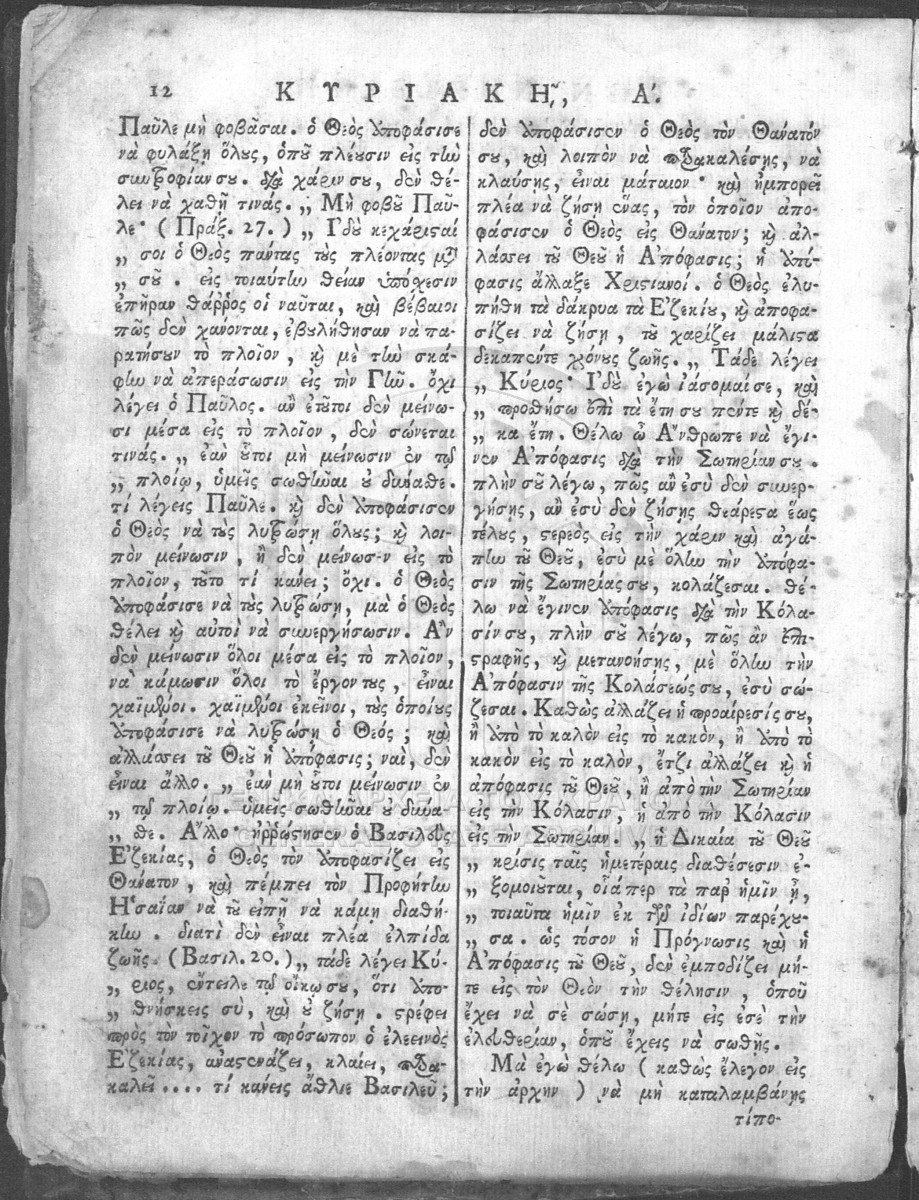 12 ΚΥΡΙΑΚΗ͂, Α'.
Παῦλε μὴ φοβᾶσαι. ὁ Θεὸς ὑποφάσισε
νὰ φυλάξῃ ὅλους, ὁποῦ πλέουσιν εἰς τὴν
συντροφίαν σου. διὰ χάριν σου, δὲν θέ-
λει νὰ χαθῇ τινάς. „ Μὴ φοβοῦ Παῦ-
λε· (Πράξ. 27.) „ Ἰδοὺ κεχάρισαί
„ σοι ὁ Θεὸς πάντας τοὺς πλέοντας μετὰ
„ σοῦ. εἰς τοιαύτην θείαν ὑπόχεσιν
ἐπῆραν θάῤῥος οἱ ναῦται, καὶ βέβαιοι
πῶς δὲν χάνονται, ἐβουλήθησαν νὰ πα-
ρατήσουν τὸ πλοῖον, καὶ μὲ τὴν σκά-
φην νὰ ἀπεράσωσιν εἰς τὴν Γῆν. ὄχι
λέγει ὁ Παῦλος. ἂν ἐτοῦτοι δὲν μείνω-
σι μέσα εἰς τὸ πλοῖον, δὲν σώνεται
τινάς. „ ἐὰν οὗτοι μὴ μείνωσιν ἐν τῷ
„ πλοίῳ, ὑμεῖς σωθῆναι οὐ δύναθε.
τί λέγεις Παῦλε. καὶ δὲν ὑποφάσισεν
ὁ Θεὸς νὰ τοὺς λυτρώσῃ ὅλους; καὶ λοι-
πὸν μείνωσιν, ἢ δὲν μείνωσ-ν εἰς τὸ
πλοῖον, τοῦτο τί κάνει; ὄχι. ὁ Θεὸς
ὑποφάσισε νὰ τοὺς λυτρώσῃ, μὰ ὁ Θεὸς
θέλει καὶ αὐτοὶ νὰ συνεργήσωσιν. Ἂν
δὲν μείνωσιν ὅλοι μέσα εἰς τὸ πλοῖον,
νὰ κάμωσιν ὅλοι τὸ ἔργον τους, εἶναι
χαϊμένοι. χαϊμένοι ἐκεῖνοι, τοὺς ὁποίους
ὑποφάσισε νὰ λυτρώσῃ ὁ Θεός; καὶ
ἀλλάσσει τοῦ Θεοῦ ἡ ὑπόφασις; ναὶ, δὲν
εἶναι ἄλλο. „ ἐὰν μὴ οὗτοι μείνωσιν ἐν
„ τῷ πλοίῳ. ὑμεῖς σωθῆναι οὐ δύνα-
„ θε. Ἄλλο· ἠῤῥώστησεν ὁ Βασιλεὺς
Ἐζεκίας, ὁ Θεὸς τὸν ὑποφασίζει εἰς
Θάνατον, καὶ πέμπει τὸν Προφήτην
Ἡσαΐαν νὰ τοῦ εἰπῇ νὰ κάμῃ διαθή-
κην. διατὶ δὲν εἶναι πλέα ἐλπίδα
ζωῆς. (Βασιλ. 20.) „ τάδε λέγει Κύ-
„ ριος, ἔντειλε τῷ οἴκῳ σου, ὅτι ὑπο-
„ θνήσκεις σὺ, καὶ οὐ ζήσῃ. στρέφει
πρὸς τὸν τοῖχον τὸ πρόσωπον ὁ ἐλεεινὸς
Ἐζεκίας, ἀναστενάζει, κλαίει, παρα-
καλεῖ.... τί κάνεις ἄθλιε Βασιλεῦ;
δὲν ὑποφάσισεν ὁ Θεὸς τὸν Θάνατόν
σου, καὶ λοιπὸν νὰ παρακαλέσῃς, νὰ
κλαύσῃς, εἶναι μάταιον· καὶ ἠμπορεῖ
πλέα νὰ ζήσῃ ἕνας, τὸν ὁποῖον ἀπο-
φάσισεν ὁ Θεὸς εἰς Θάνατον; καὶ ἀλ-
λάσσει τοῦ Θεοῦ ἡ Ἀπόφασις; ἡ ὑπό-
φασις ἄλλαξε Χριστιανοί. ὁ Θεὸς ἐλυ-
πήθη τὰ δάκρυα τὰ Ἐζεκίου, καὶ ἀποφα-
σίζει νὰ ζήσῃ, τοῦ χαρίζει μάλιστα
δεκαπέντε χρόνους ζωῆς. „ Τάδε λέγει
„ Κύριος· Ἰδοὺ ἐγὼ ἰάσομαί σε, καὶ
„ προθήσω ἐπὶ τὰ ἔτη σου πέντε καὶ δέ-
„ κα ἔτη. Θέλω ὦ Ἄνθρωπε νὰ ἔγι-
νεν Ἀπόφασις διὰ τὴν Σωτηρίαν σου.
πλὴν σοῦ λέγω, πῶς ἂν ἐσὺ δὲν συνερ-
γήσῃς, ἂν ἐσὺ δὲν ζήσῃς θεάρεστα ἕως
τέλους, στερεὸς εἰς τὴν χάριν καὶ ἀγά-
πην τοῦ Θεοῦ, ἐσὺ μὲ ὅλην τὴν ὑπόφα-
σιν τῆς Σωτηρίας σου, κολάζεσαι. θέ-
λω νὰ ἔγινεν ὑπόφασις διὰ τὴν Κόλα-
σίν σου, πλὴν σοῦ λέγω, πῶς ἂν ἐπι-
στραφῇς, καὶ μετανοήσῃς, μὲ ὅλην τὴν
Ἀπόφασιν τῆς Κολάσεώς σου, ἐσὺ σώ-
ζεσαι. Καθὼς ἀλλάζει ἡ προαίρεσίς σου,
ἢ ὑπὸ τὸ καλὸν εἰς τὸ κακὸν, ἢ ὑπὸ τὸ
κακὸν εἰς τὸ καλὸν, ἔτζι ἀλλάζει καὶ ἡ
ἀπόφασις τοῦ Θεοῦ, ἢ ἀπὸ τὴν Σωτηρίαν
εἰς τὴν Κόλασιν, ἢ ἀπὸ τὴν Κόλασιν
εἰς τὴν Σωτηρίαν. „ ἡ Δικαία τοῦ Θεοῦ
„ κρίσις ταῖς ἡμετέραις διαθέσεσιν ἐ-
„ ξομοιοῦται, οἷάπερ τὰ παρ' ἡμῖν ᾖ,
„ τοιαῦτα ἡμῖν ἐκ τῶν ἰδίων παρέχου-
„ σα. ὡς τόσον ἡ Πρόγνωσις καὶ ἡ
Ἀπόφασις τοῦ Θεοῦ, δὲν ἐμποδίζει μή-
τε εἰς τὸν Θεὸν τὴν θέλησιν, ὁποῦ
ἔχει νὰ σὲ σώσῃ, μήτε εἰς ἐσὲ τὴν
ἐλευθερίαν, ὁποῦ ἔχεις νὰ σωθῇς.
Μὰ ἐγὼ θέλω (καθὼς ἔλεγον εἰς
τὴν ἀρχὴν) νὰ μὴ καταλαμβάνῃς
τίπο-